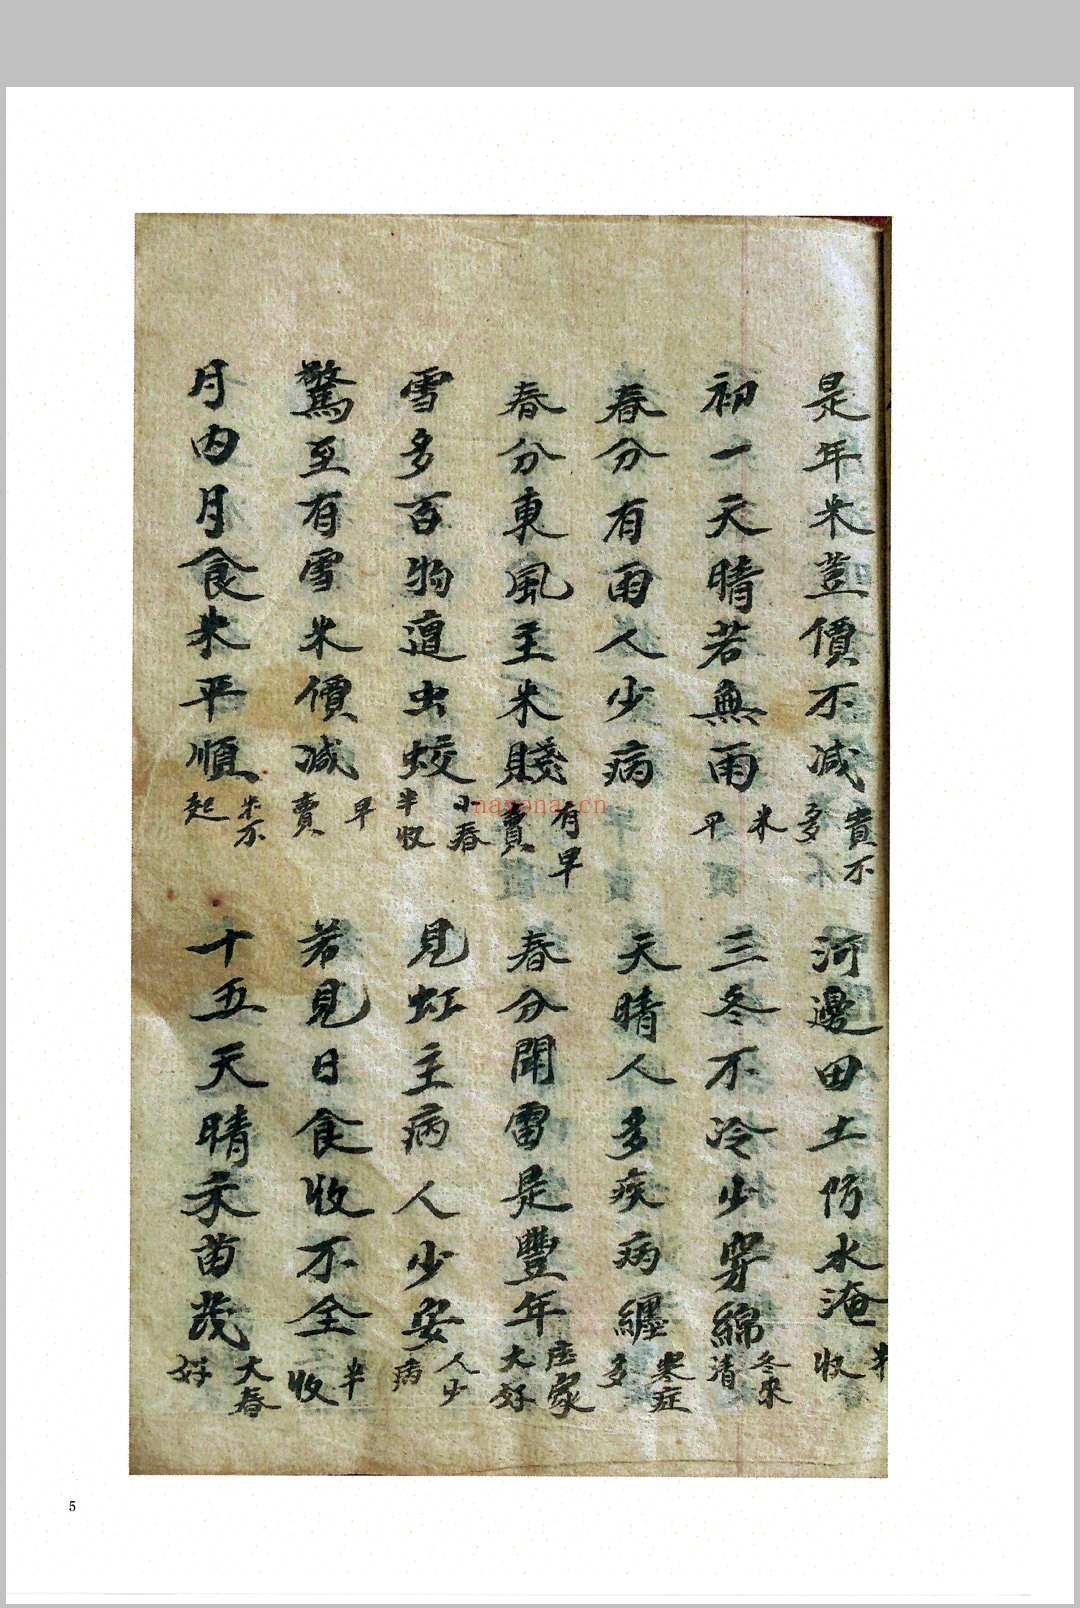 是年米荳價不減 貴不多 河邊田土防水淹 半收
初一天晴若無雨 米平 三冬不冷少穿綿 冬來清
春分有雨人少病 天晴人多疾病纏 寒症多
春分東風主米賤 有早賣 春分聞雷是豐年 庄家大好
雪多百物遭虫蛟 小春半收 見虹主病人少安 人少病
驚至有雪米價減 早賣 若見日食收不全 半收
月內月食米平順 米不起 十五天晴禾苗茂 大春好
nayona.cn
5